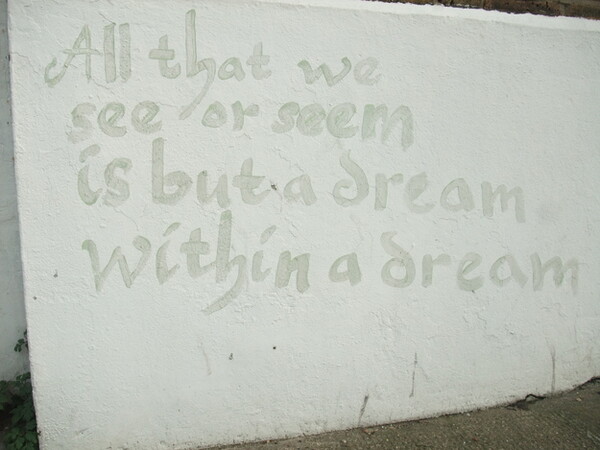 All that we
see or seem
is but a dream
within a dream